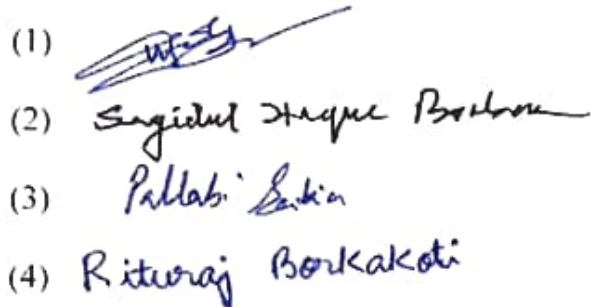 (1)
(2) Sagidul Haque Borbora
(3) Pallabi Saikia
(4) Rituraj Borkakoti